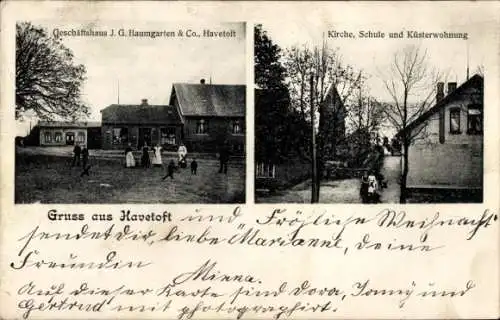 Geschäftshaus J. G. Baumgarten & Co., Havetoft.
Kirche, Schule und Küsterwohnung
Gruss aus Havetoft und Fröhliche Weihnacht"
sendet Dir, liebe "Marianne, deine
Freundin
Minna.
Auf dieser Karte sind Dora, Jonny und
Gertrud mit photographirt.